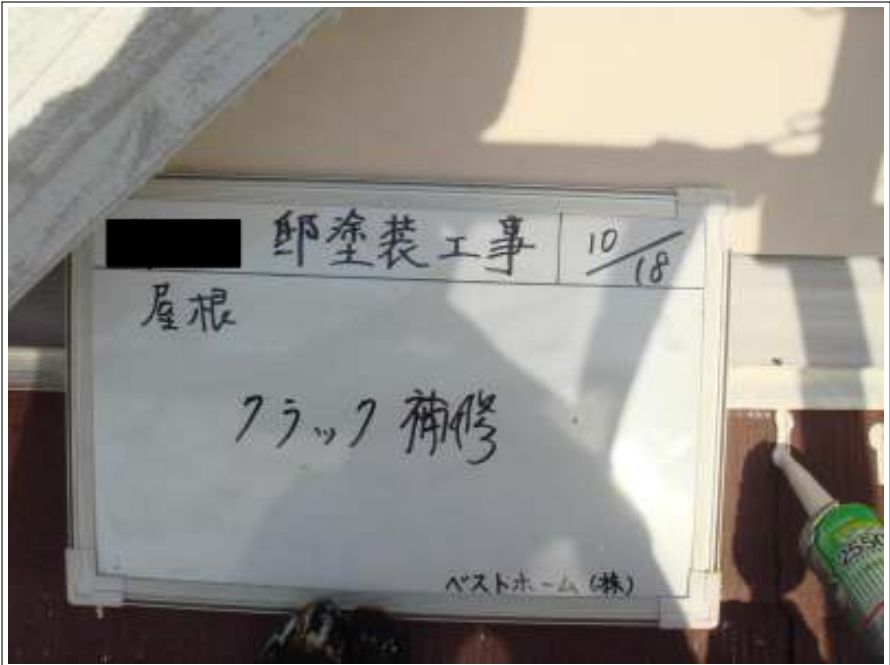 邸塗装工事 10/18
屋根
クラック補修
ベストホーム(株)
2550